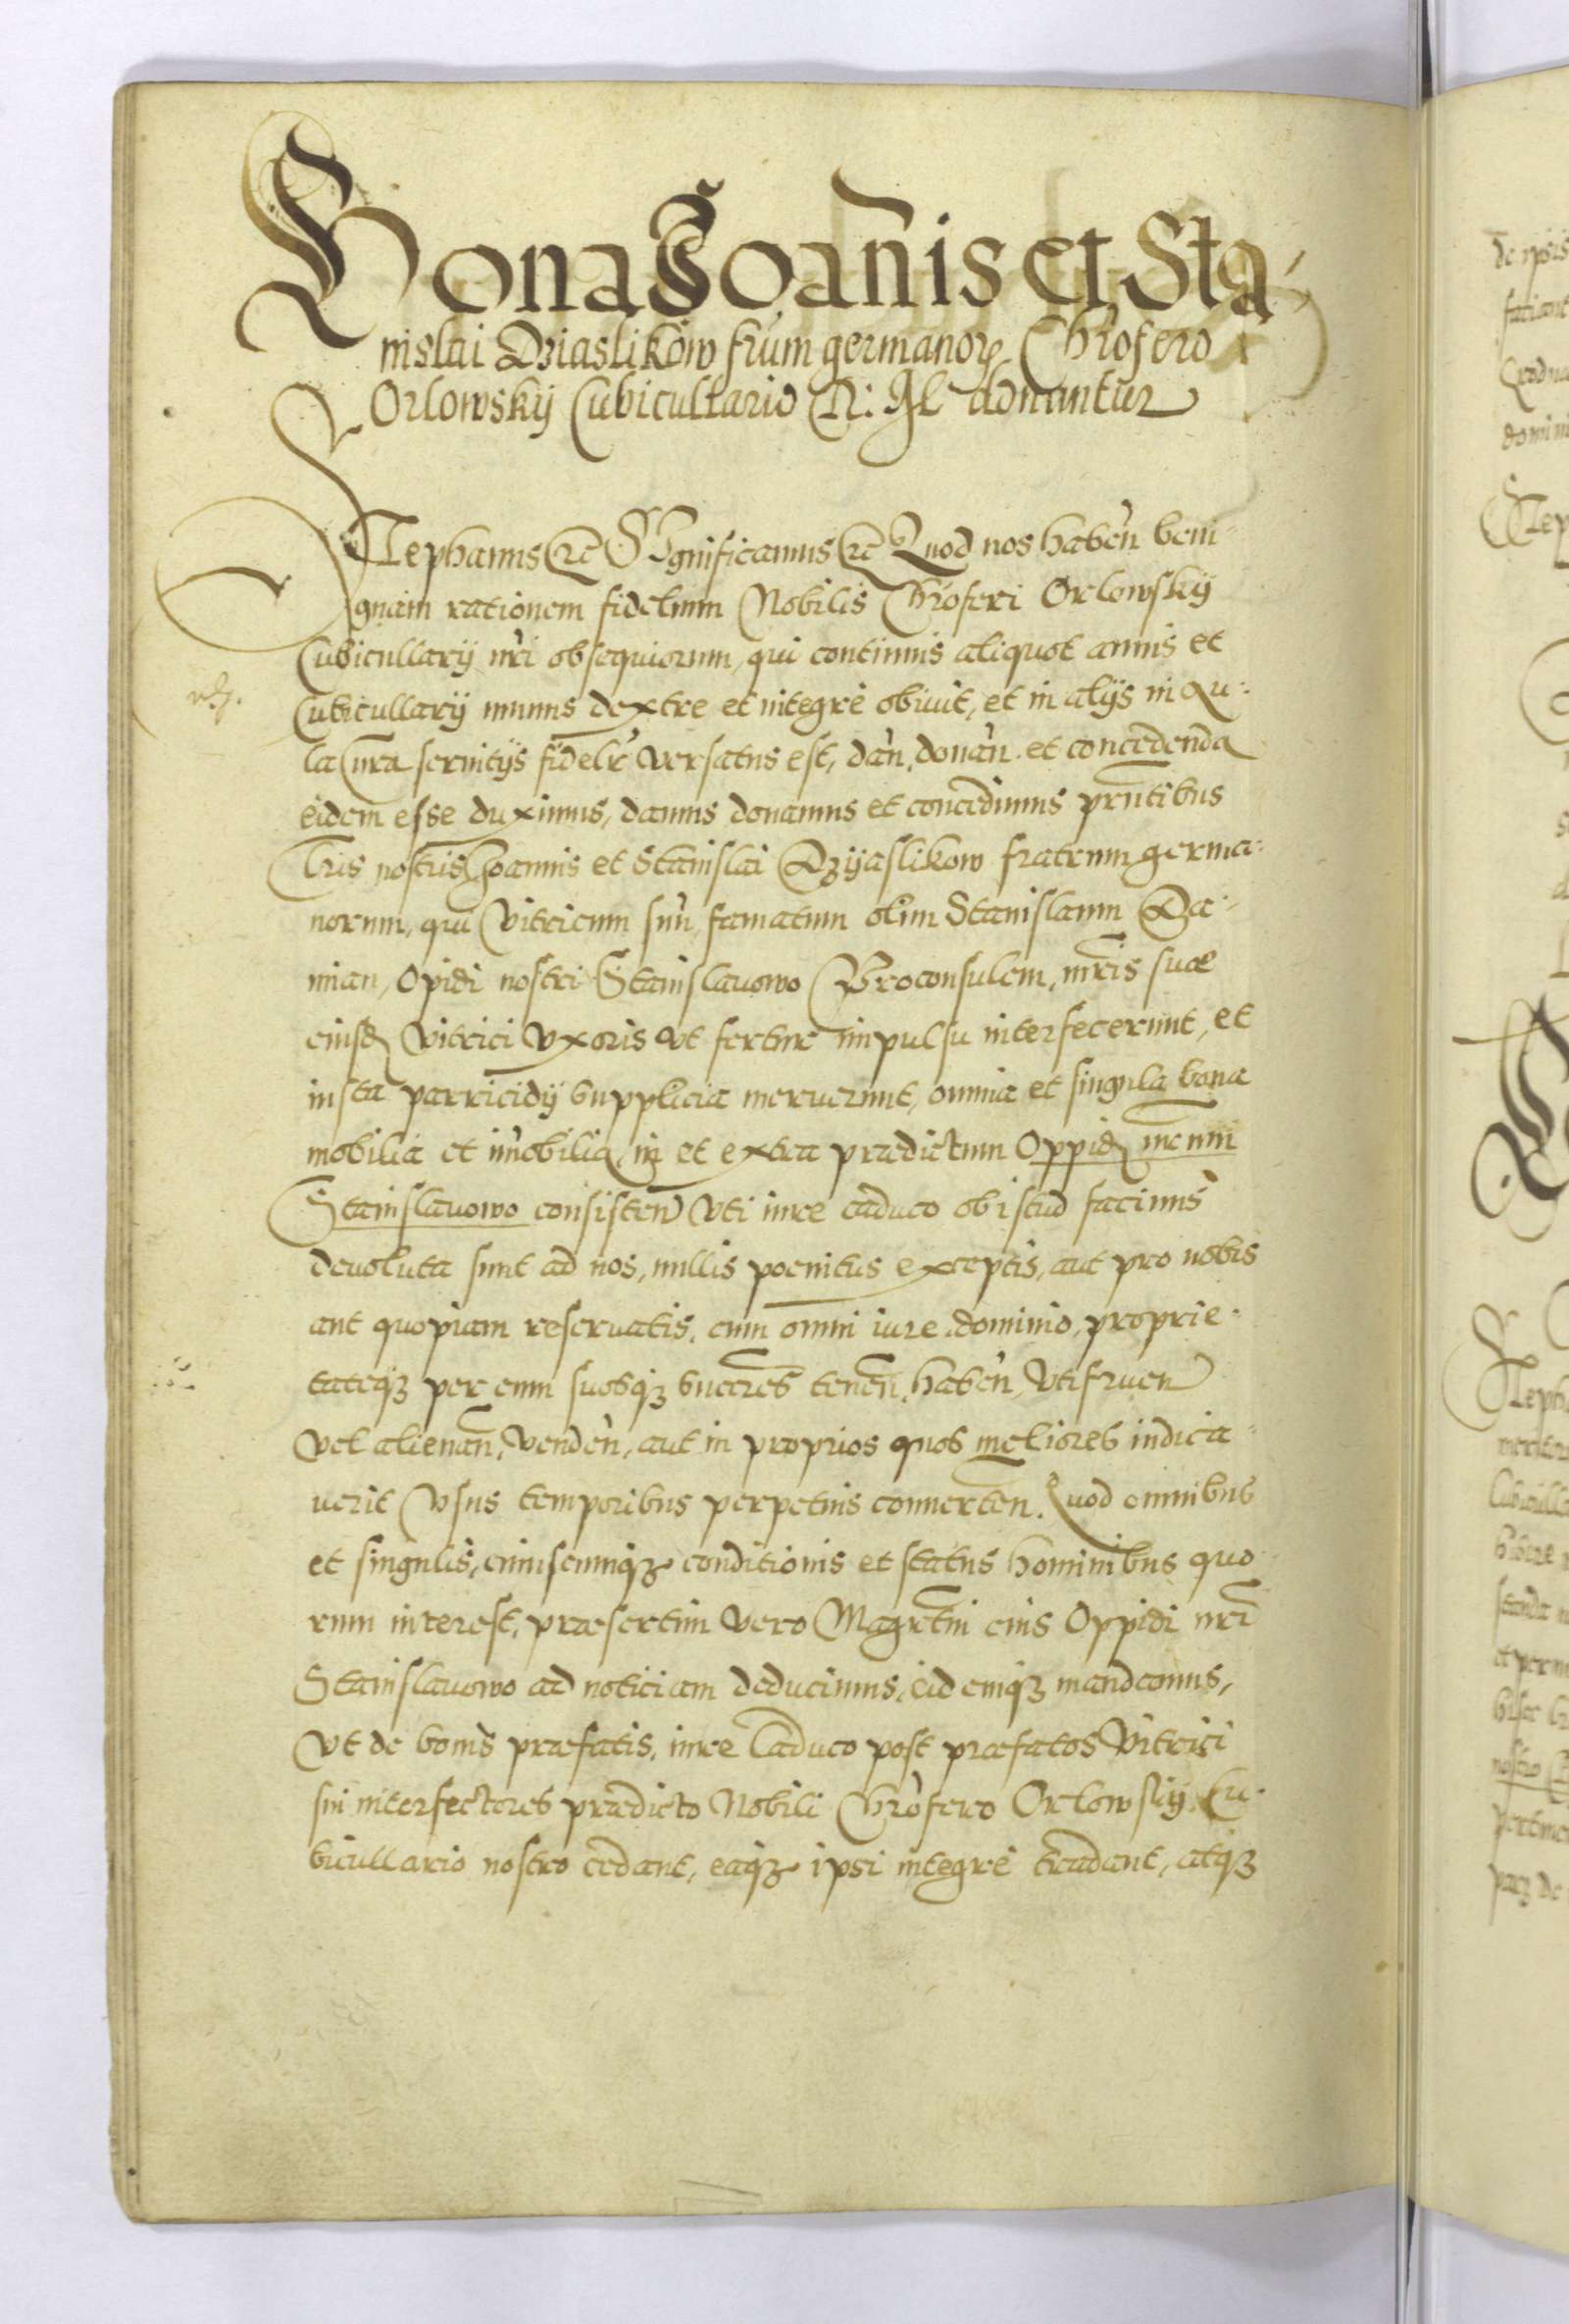 Bona Joañis et Sta-
nislai Dziaslikow frũm germanoꝝ Chrõfero
Orlowskij Cubicullario R: donantur
Stephanus Significamus Quod nos habeñ beni-
gnam rationem fidelium Nobilis Chrõferi Orlowskij
Cubicullarij nr̃i obsequiorum, qui continuis aliquot annis et
Cubicullarij munus dextre et integrè obiuit, et in alijs in Au-
la nr̃a seruitijs fidelr̃ versatus est, dañ, donañ. et concedenda
eidem esse duximus, damus donamus et concedimus pr̃ntibus
Lr̃is nostris Joannis et Stanislai Dzijaslikow fratrum germa-
norum, qui Vitricum suũ, famatum olim Stanislaum Da-
mian, Opidi nostri Stanislauowo Proconsulem, mr̃is suæ
eiusdꝫ Vitrici Vxoris vt fertur impulsu interfecerunt, et
iusta parricidij supplicia meruerunt, omnia et singula bona
mobilia et im̃obilia, in et extra prædictum Oppidꝫ
Stanislauowo consisteñ vti iure caduco ob istud facinus
deuoluta sunt ad nos, nullis poenitus exceptis, aut pro nobis
aut quopiam reseruatis, cum omni iure, dominio, proprie-
tateqꝫ per eum suosqꝫ succr̃es teneñ, habeñ, vtifrueñ
vel alienañ, vendeñ, aut in proprios quos meliores iudica-
uerit vsus temporibus perpetuis conuerteñ. Quod omnibus
et singulis, cuiuscumqꝫ conditionis et status hominibus quo-
rum interest, præsertim vero Magr̃tui eius Oppidi nr̃i
Stanislauowo ad noticiam deducimus, eidemqꝫ mandamus,
vt de bonis præfatis, iure Caduco post præfatos Vitrici
sui interfectores prædicto Nobili Chrõfero Orlowskij Cu-
bicullario nostro cedant, eaqꝫ ipsi integrè tradant, atqꝫ